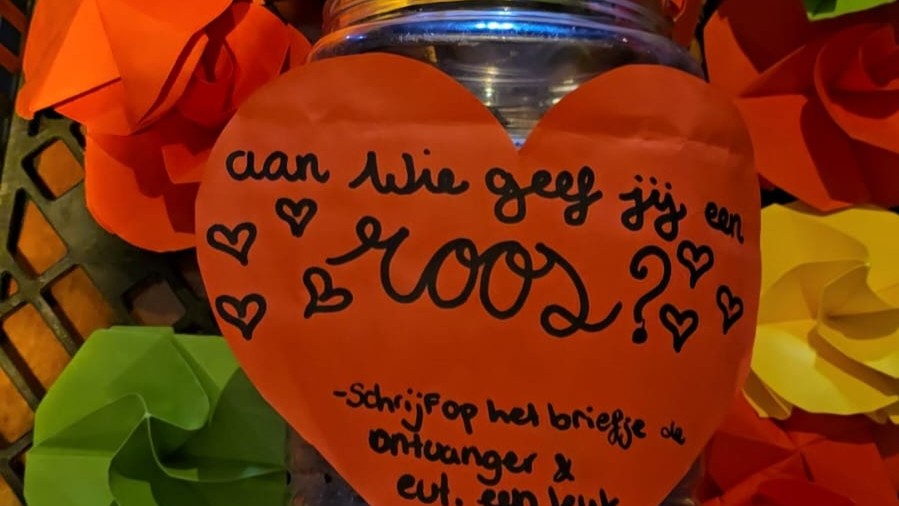 aan wie geef jij een
roos?
-Schrijf op het briefje de
ontvanger &
evt. een leuk